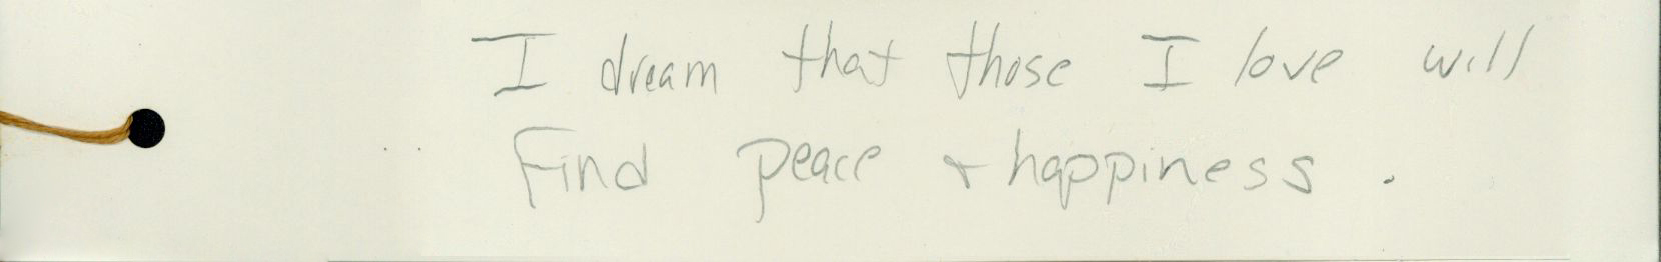 I dream that those I love will
Find peace + happiness.